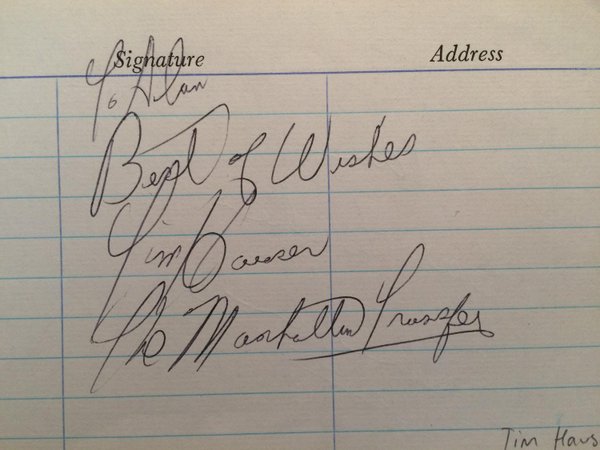 Signature Address
To Alan
Best of Wishes
Tim Hauser
The Manhattan Transfer
Tim Haus